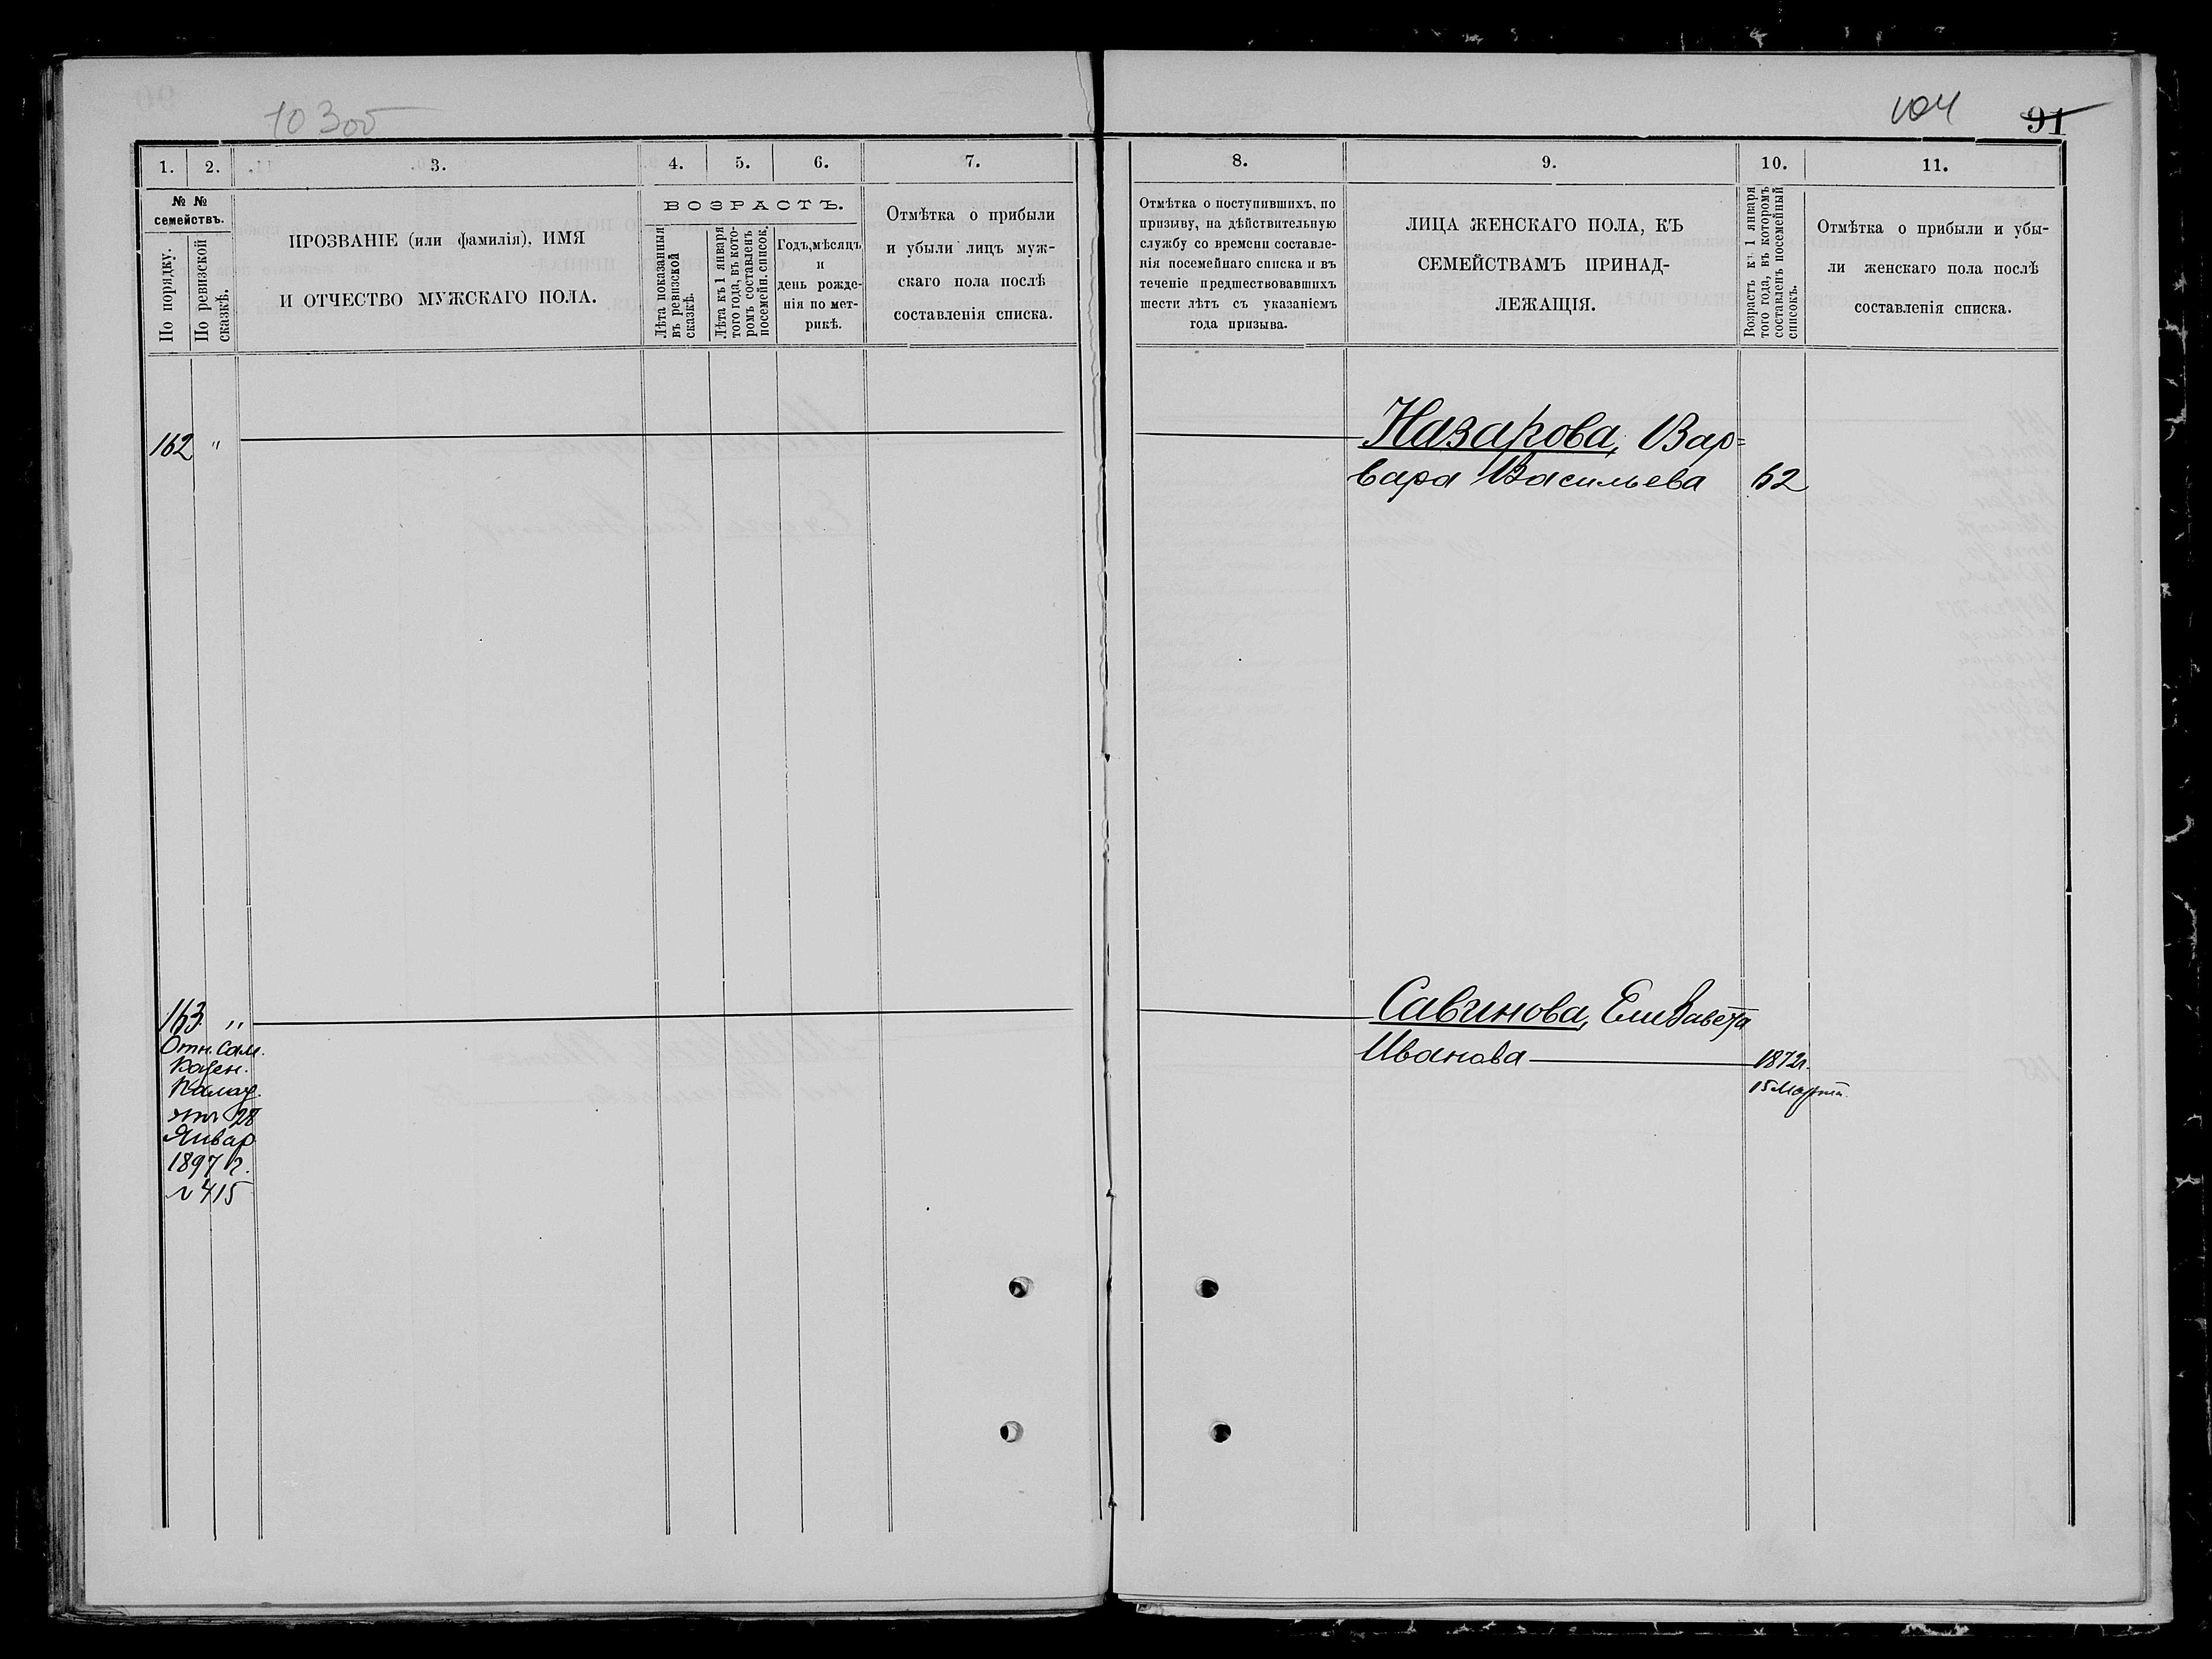 10 3об
104
91
1.
2.
3.
4.
5.
6.
7.
№ №
семействъ.
По порядку.
По ревизской
сказкѣ.
ПРОЗВАНІЕ (или фамилія), ИМЯ
И ОТЧЕСТВО МУЖСКАГО ПОЛА.
ВОЗРАСТЪ.
Лѣта показанныя
въ ревизской
сказкѣ.
Лѣта къ 1 января
того года, въ кото-
ромъ составленъ
посемейн. список.
Годъ, мѣсяцъ
и
день рожде-
нія по мет-
рикѣ.
Отмѣтка о прибыли
и убыли лицъ муж-
скаго пола послѣ
составленія списка.
8.
9.
10.
11.
Отмѣтка о поступившихъ, по
призыву, на дѣйствительную
службу со времени составле-
нія посемейнаго списка и въ
теченіе предшествовавшихъ
шести лѣтъ съ указаніемъ
года призыва.
ЛИЦА ЖЕНСКАГО ПОЛА, КЪ
СЕМЕЙСТВАМЪ ПРИНАД-
ЛЕЖАЩІЯ.
Возрастъ къ 1 января
того года, въ которомъ
составленъ посемейный
списокъ.
Отмѣтка о прибыли и убы-
ли женскаго пола послѣ
составленія списка.
162 "
Назарова, Вар=
вара Васильева 62
163 "
Отн. Сам.
Казен.
Палат.
отъ 28
Январ
1897 г.
№ 415
Савинова, Елизавета
Иванова 1872г.
15 Марта.